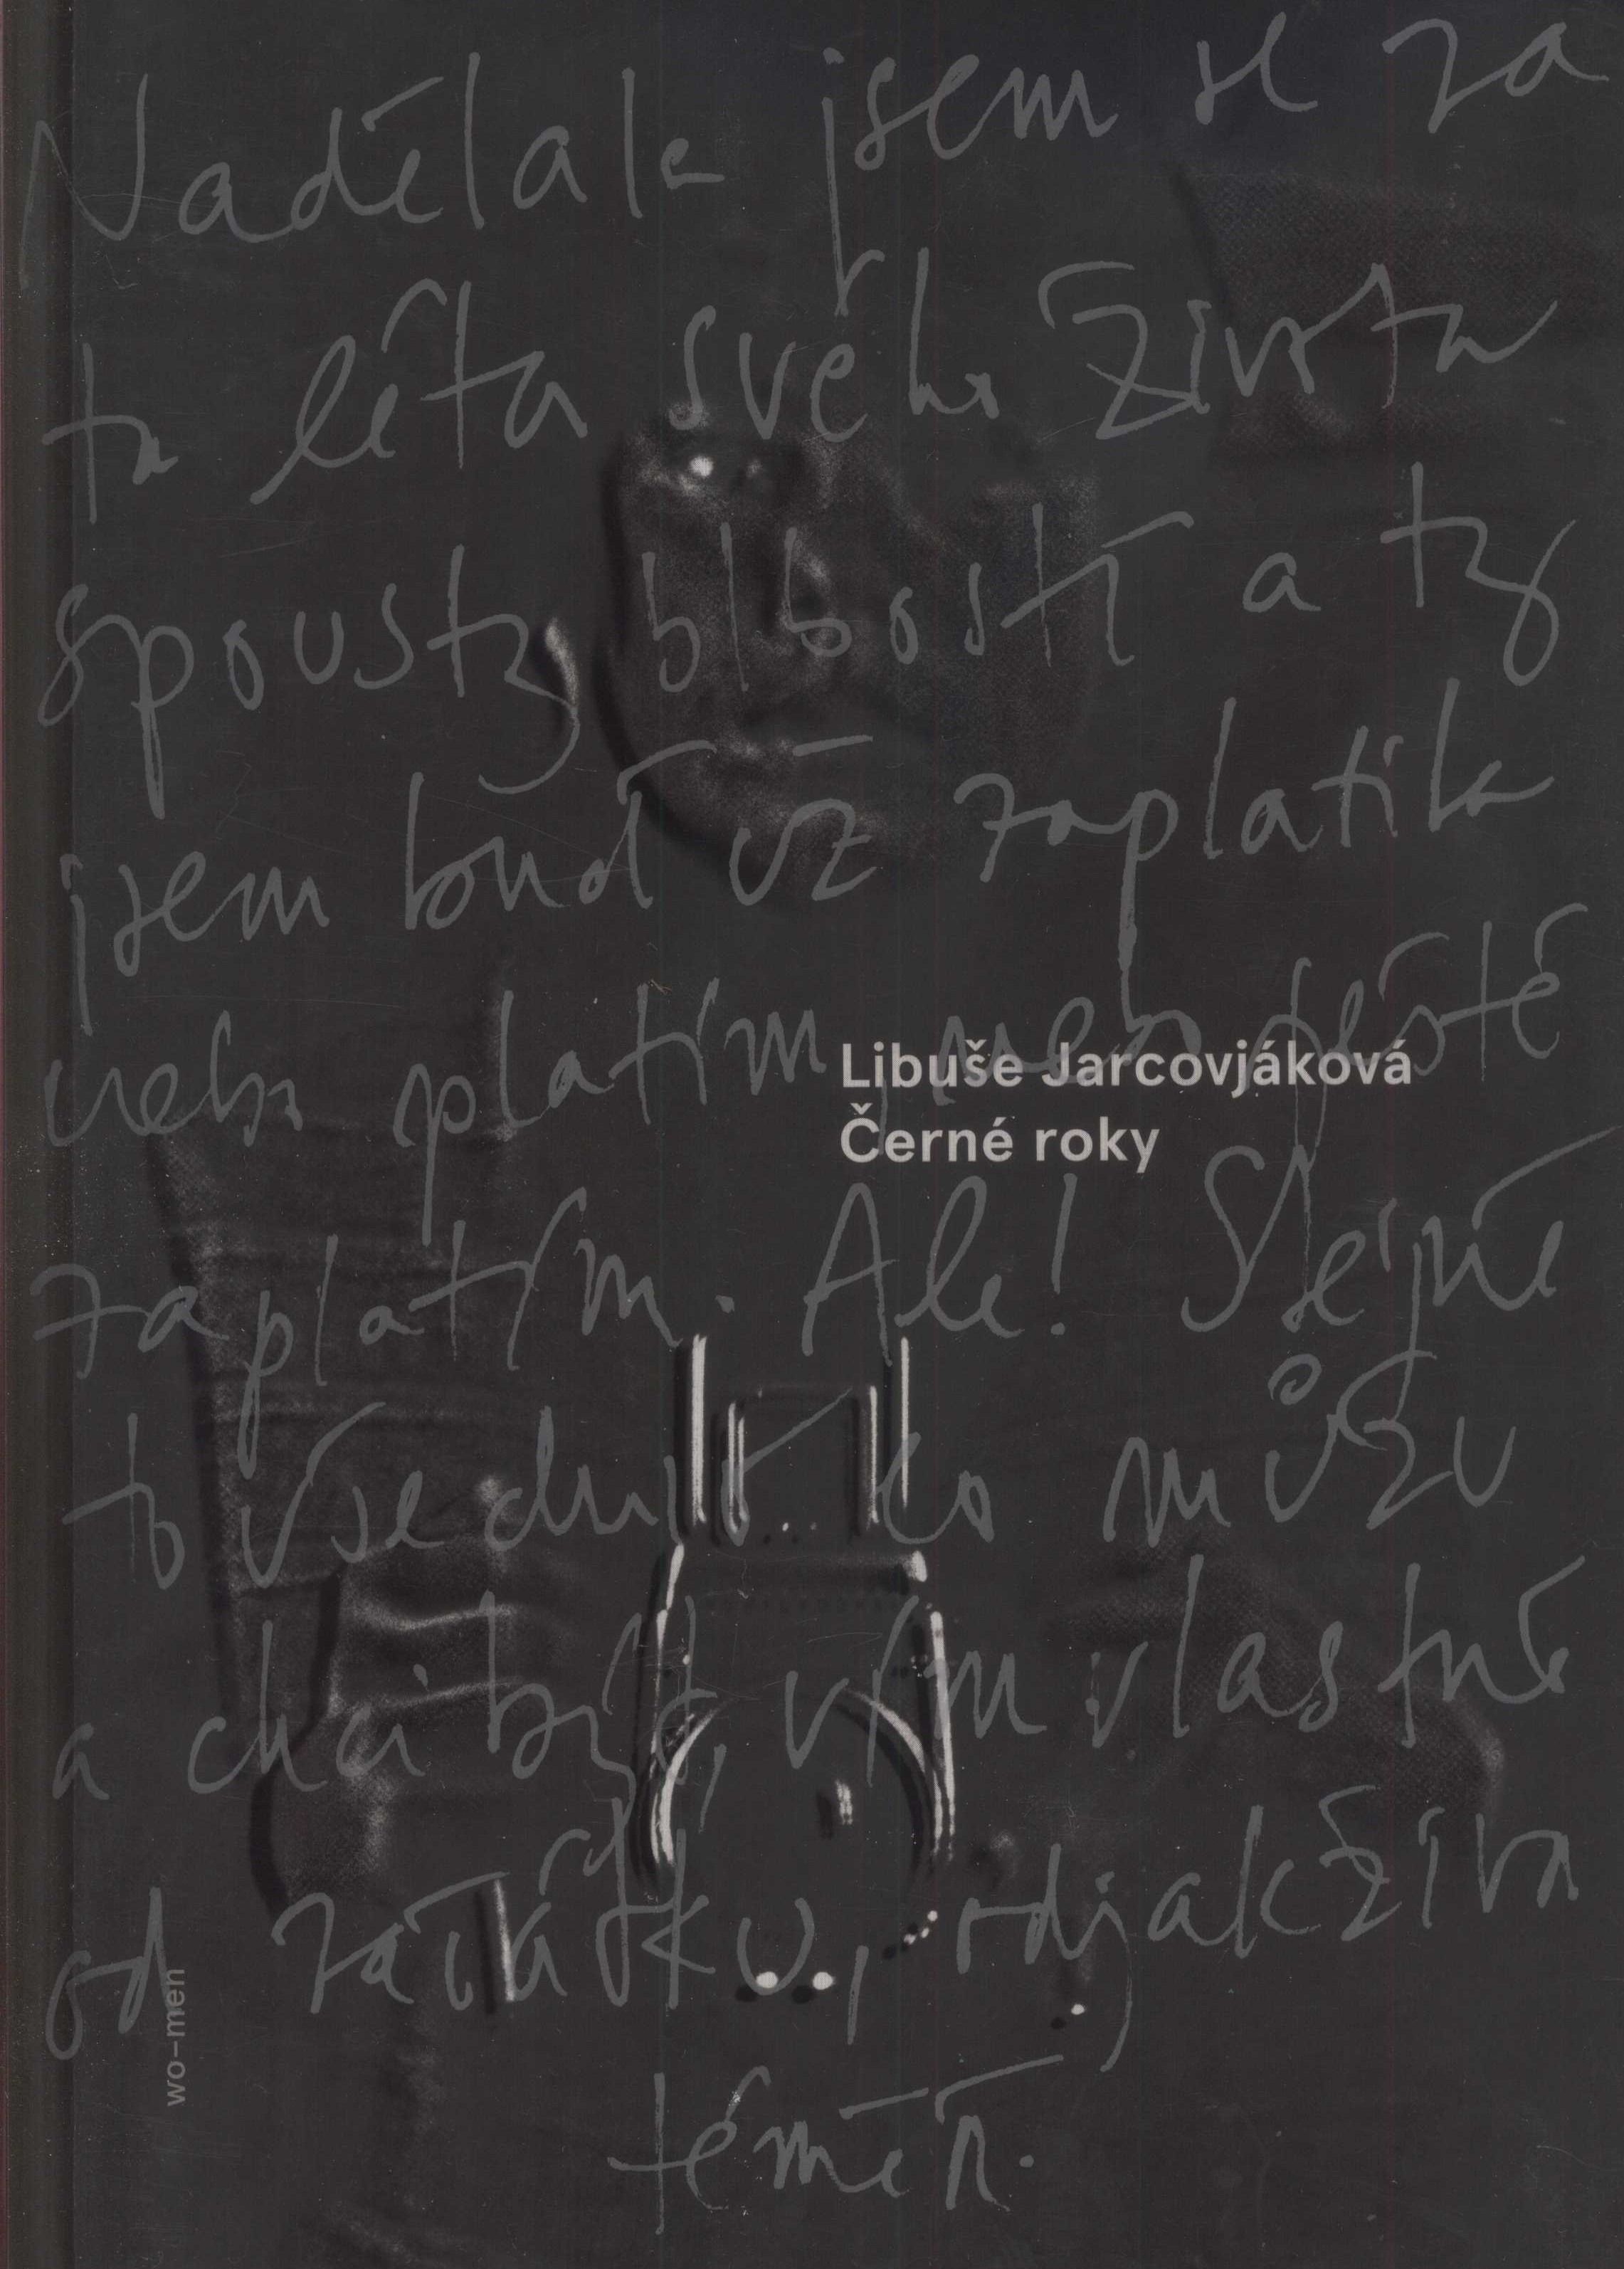 Nadělala jsem se za
ta léta svého života
spousty blbostí a ty
jsem buď už zaplatila
nebo platím, nebo ještě
Libuše Jarcovjáková
Černé roky
zaplatím. Ale! Stejně
to všechno co můžu
a chci být, vím vlastně
od začátku, odjakživa
wo–men
téměř.